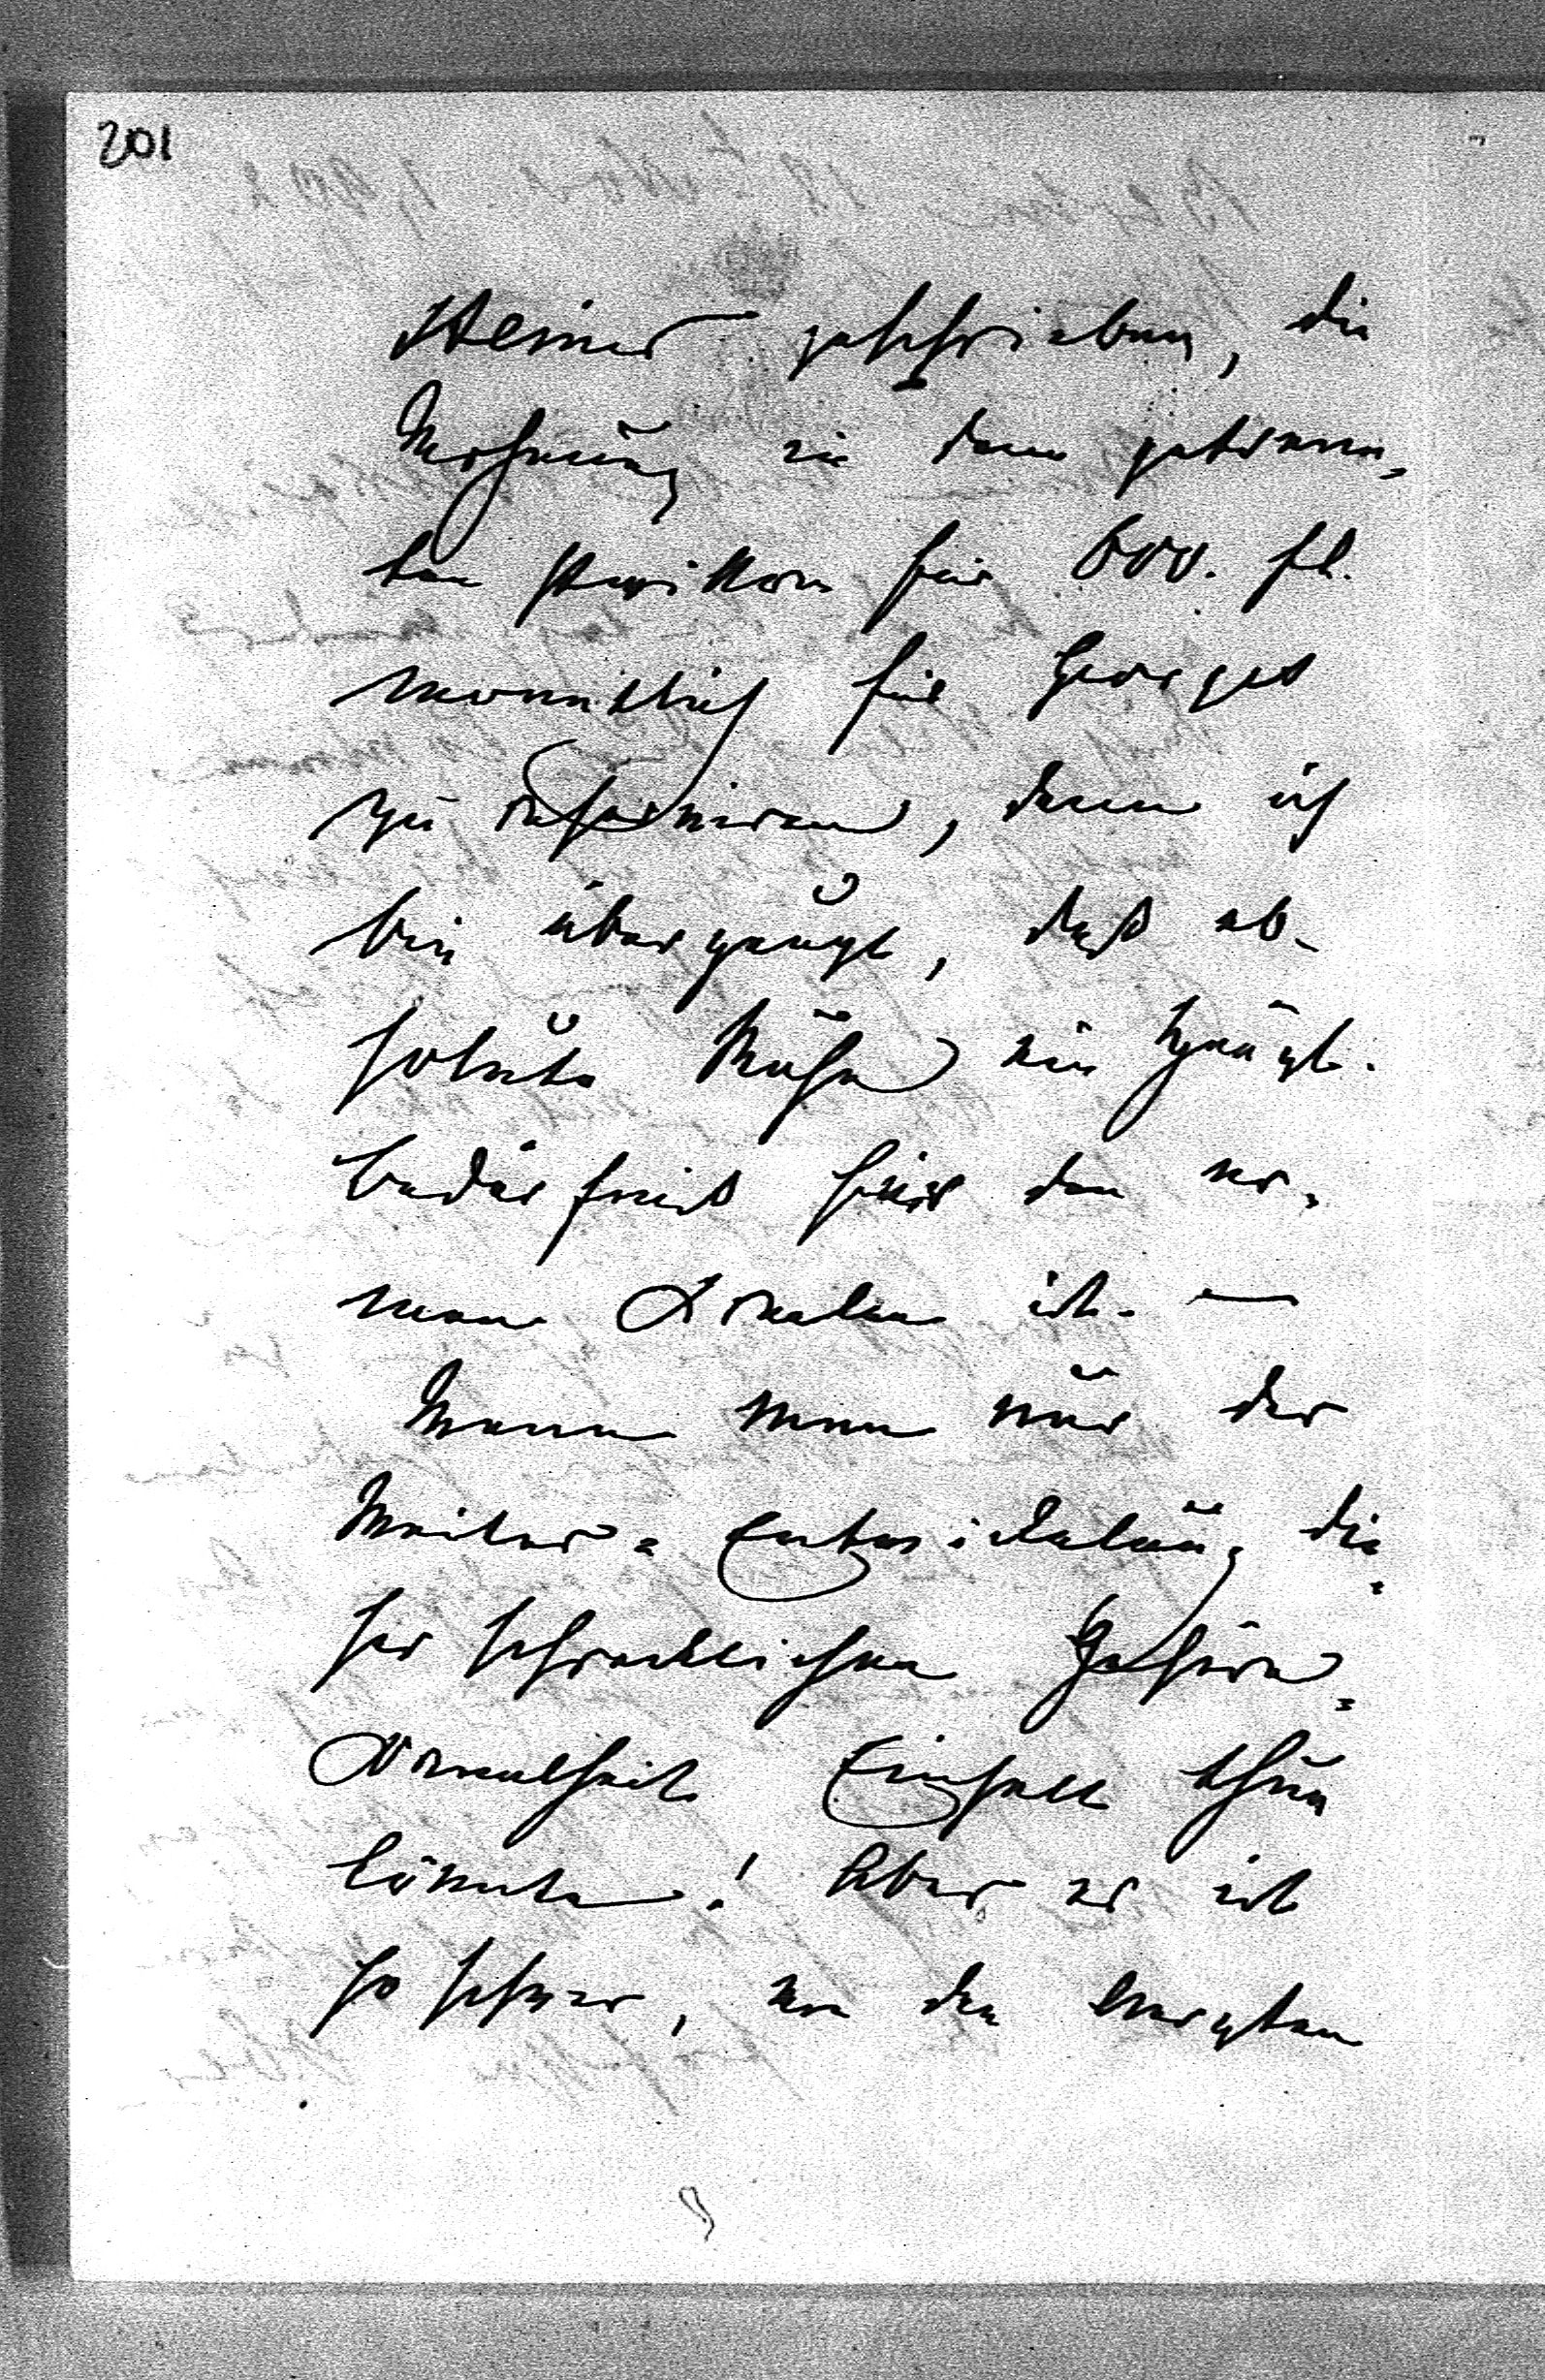 201
Steiner geschrieben, die
Wohnung in dem getrenn-
ten Pavillon für 600. fl.
monatlich für Georges
zu reserviren, denn ich
bin überzeugt, daß ab-
solute Ruhe ein Haupt-
bedürfniß für den ar-
men Kranken ist. —
Wenn man nur der
Weiter-Entwickelung die-
ser schrecklichen Gehirn-
krankheit Einhalt thun
könnte! Aber es ist
so schwer, von den Ärzten